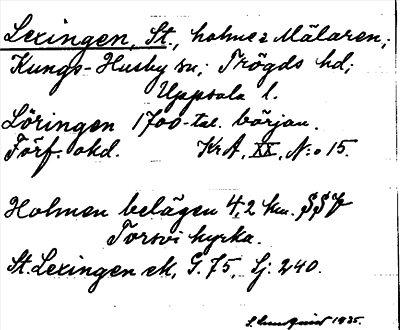 Lexingen, St., holme i Mälaren;
Kungs-Husby sn; Trögds hd;
Uppsala l.
Löringen 1700-tal. början.
Förf. okd. KrA, XX, N:o 15.
Holmen belägen 4,2 km. SSV
Torsvi kyrka.
St. Lexingen ek, G. 75, Lj: 240.
1935.